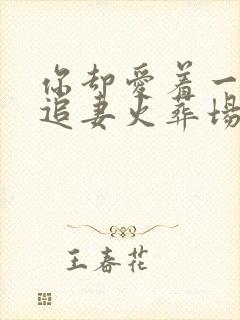 你却爱着一
追妻火葬场
王春花